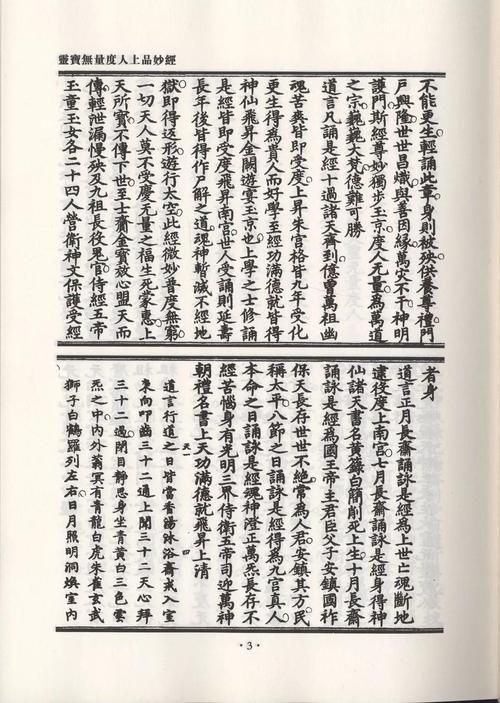 靈寶無量度人上品妙經
不能更生輕誦此章身則被殃供養尊禮門
戶興隆世世昌熾與善因緣萬災不干神明
護門斯經尊妙獨步玉京度人无量為萬道
之宗巍巍大梵德難可勝
道言凡誦是經十過諸天齊到億曾萬祖幽
魂苦爽皆即受度上昇朱宮格皆九年受化
更生得為貴人而好學至經功滿德就皆得
神仙飛昇金闕遊宴玉京也上學之士修誦
是經皆即受度飛昇南宮世人受誦則延壽
長年後皆得作尸解之道魂神暫滅不經地
獄即得返形遊行太空此經微妙普度無窮
一切天人莫不受慶无量之福生死蒙惠上
天所寶不傳下世至士賫金寶效心盟天而
傳輕泄漏慢殃及九祖長役鬼官侍經五帝
玉童玉女各二十四人營衛神文保護受經
者身
道言正月長齋誦詠是經為上世亡魂斷地
逮役度上南宮七月長齋誦詠是經身得神
仙諸天書名黃籙白簡削死上生十月長齋
誦詠是經為國王帝主君臣父子安鎮國祚
保天長存世世不絕常為人君安鎮其方民
稱太平八節之日誦詠是經得為九宮真人
本命之日誦詠是經魂神澄正萬炁長存不
經苦惱身有光明三界侍衛五帝司迎萬神
朝禮名書上天功滿德就飛昇上清
天一 四
道言行道之日皆當香湯沐浴齋戒入室
東向叩齒三十二通上聞三十二天心拜
三十二過閉目靜思身坐青黃白三色雲
炁之中內外蓊冥有青龍白虎朱雀玄武
獅子白鶴羅列左右日月照明洞煥室內
·3·